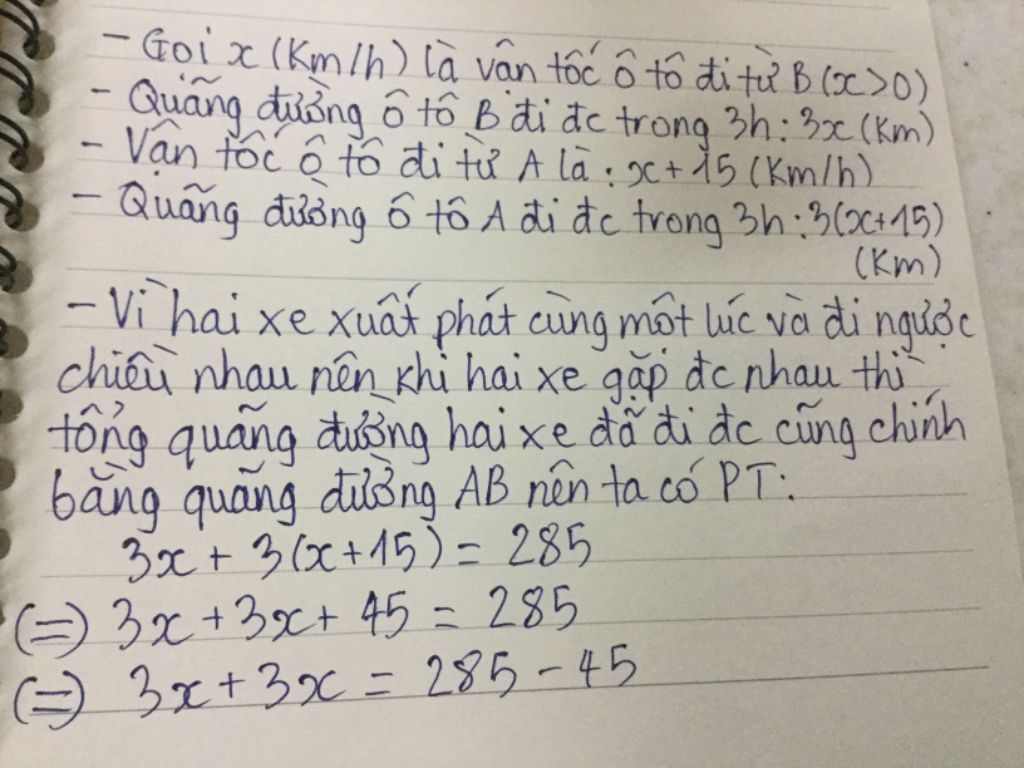 - Gọi x (Km/h) là vận tốc ô tô đi từ B (x>0)
- Quãng đường ô tô B đi đc trong 3h: 3x (Km)
- Vận tốc ô tô đi từ A là: x+15 (Km/h)
- Quãng đường ô tô A đi đc trong 3h: 3(x+15)
(Km)
- Vì hai xe xuất phát cùng một lúc và đi ngược
chiều nhau nên khi hai xe gặp đc nhau thì
tổng quãng đường hai xe đã đi đc cũng chính
bằng quãng đường AB nên ta có PT:
3x + 3(x+15) = 285
(=) 3x + 3x + 45 = 285
(=) 3x + 3x = 285 - 45